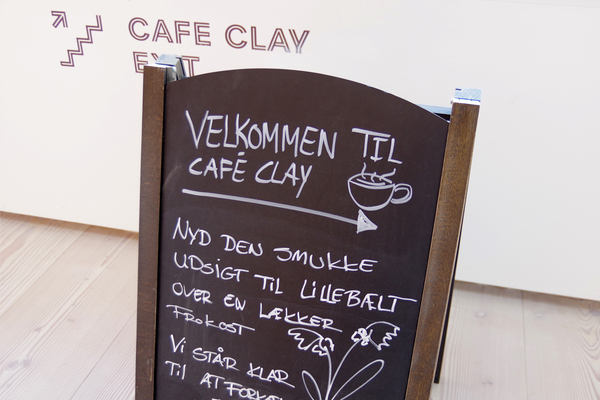 CAFE CLAY
EXIT
VELKOMMEN TIL
CAFÉ CLAY
NYD DEN SMUKKE
UDSIGT TIL LILLEBÆLT
OVER EN LÆKKER
FROKOST
VI STÅR KLAR
TIL AT FORKÆ